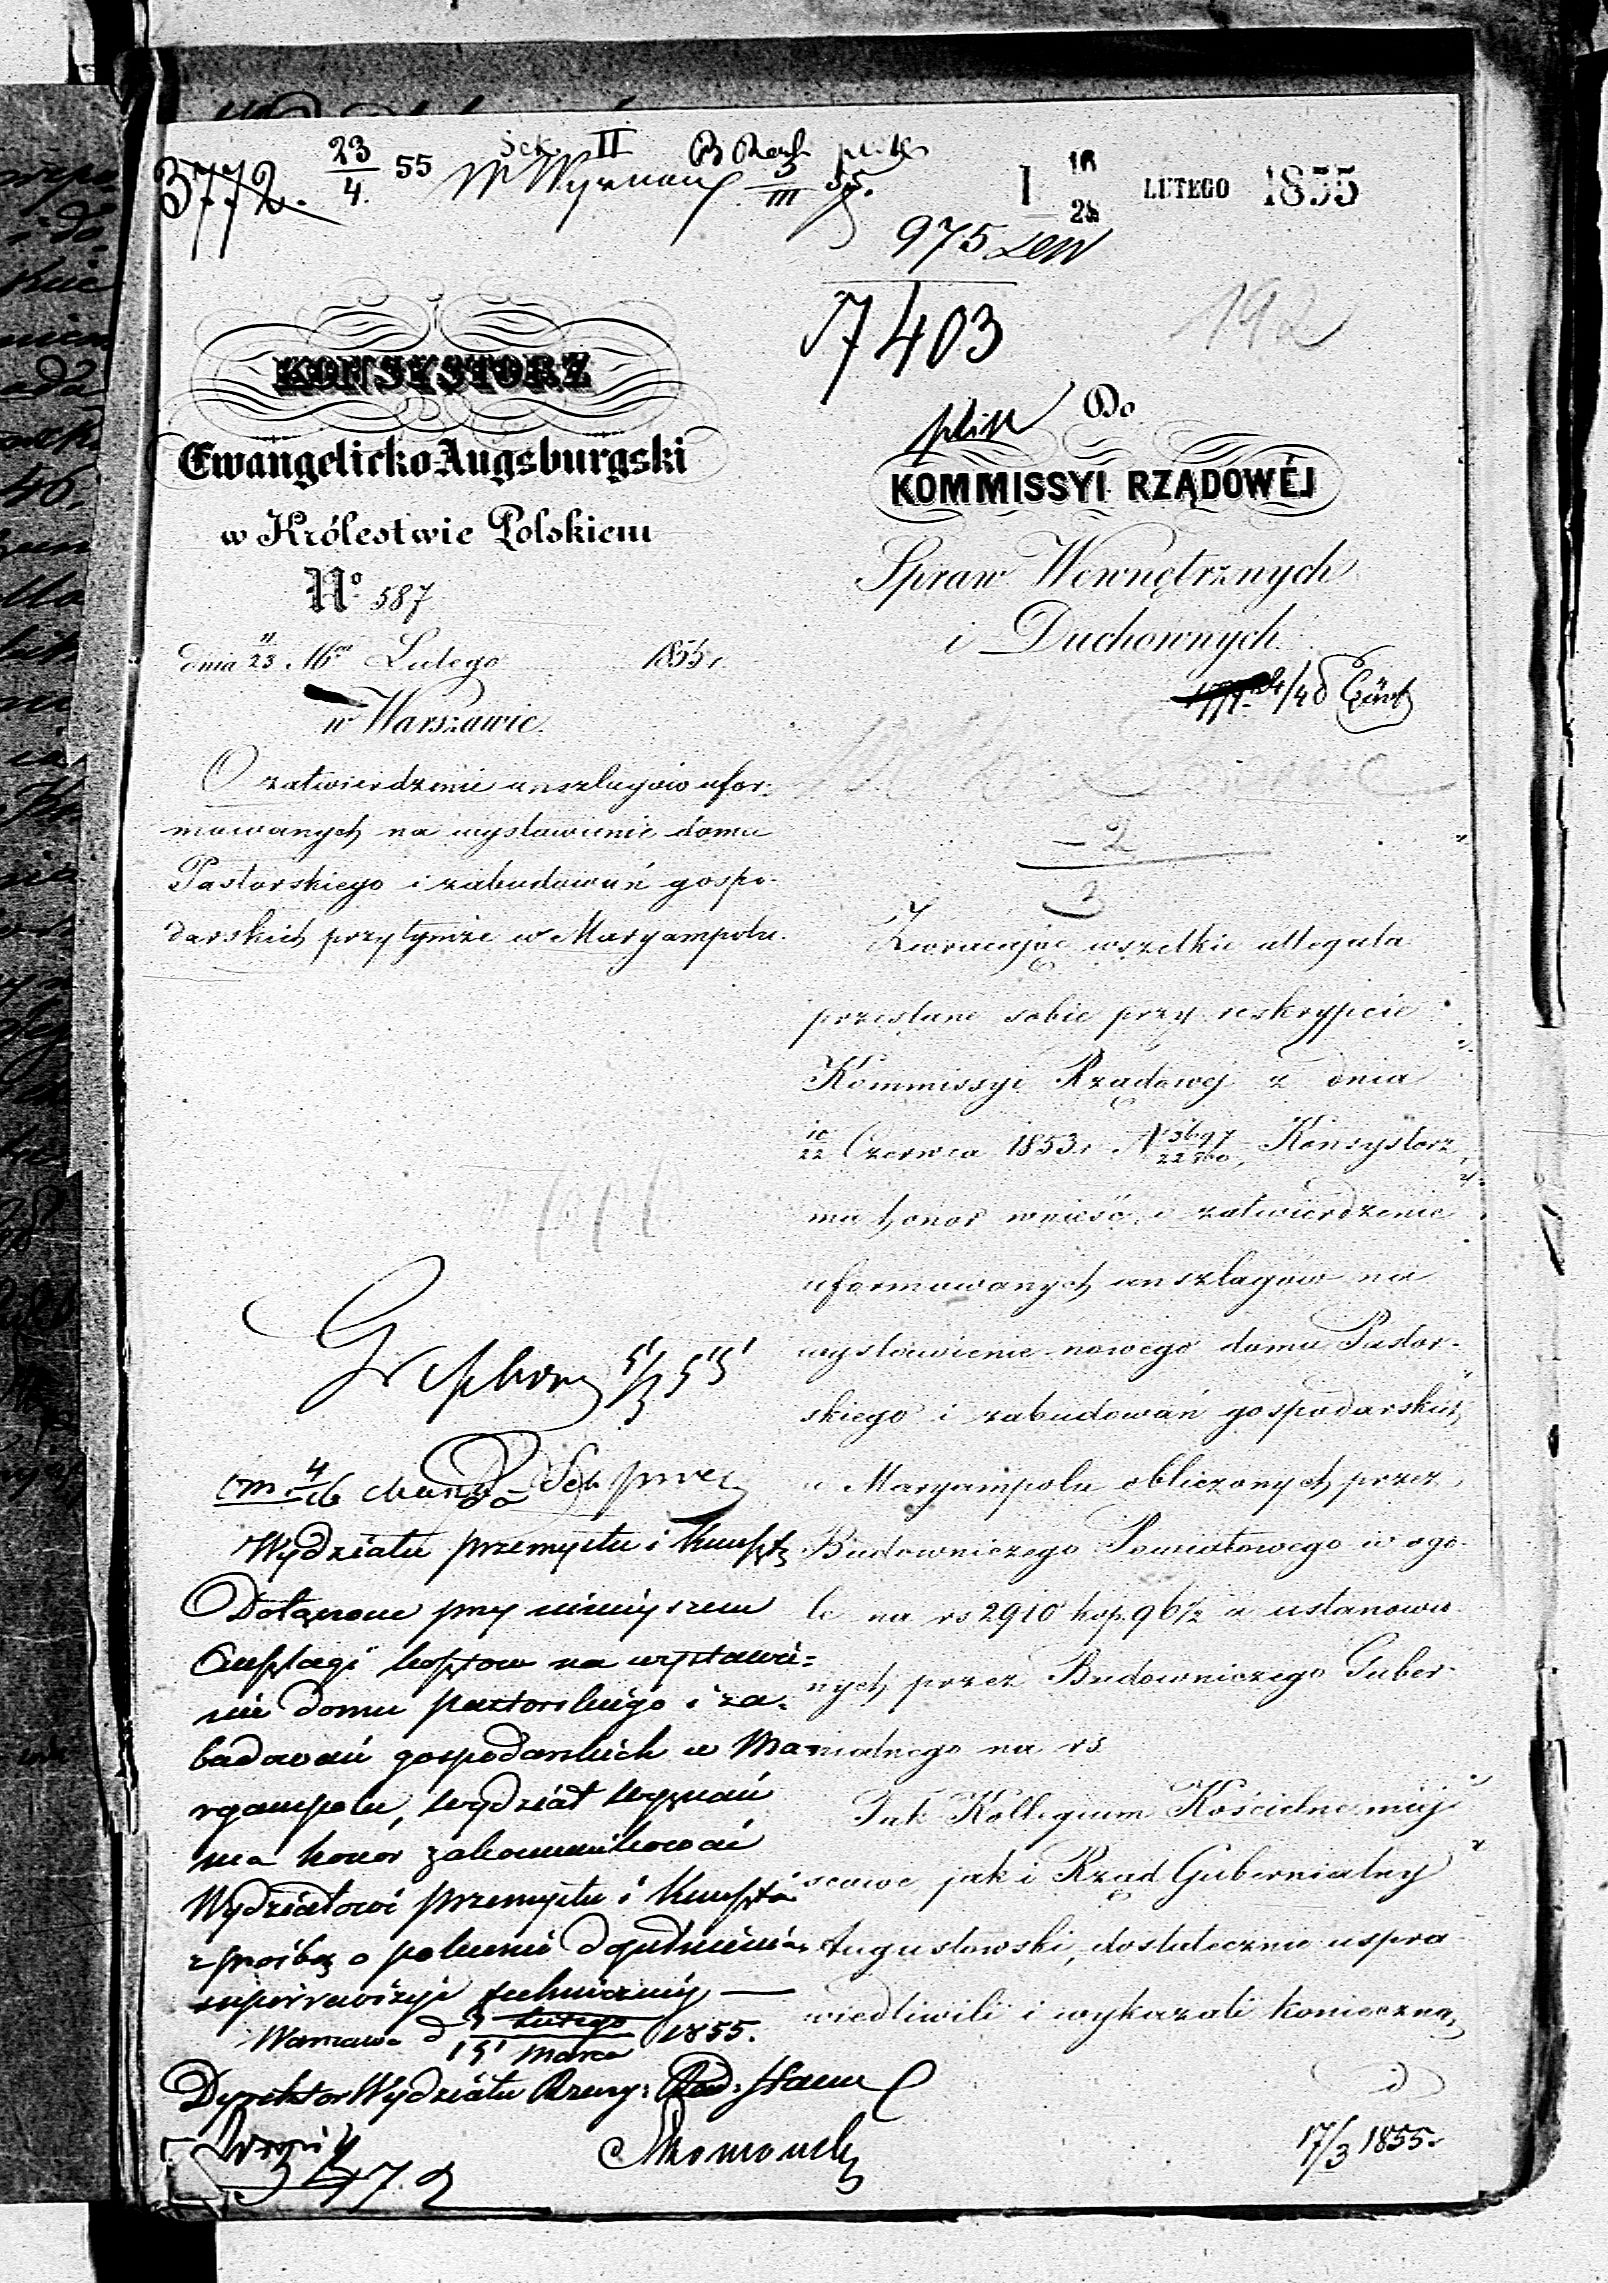 3772.
23/4. 55
Sek. II
W Wyznań 3/III 55.
I 16/28 LUTEGO 1855
975
7403
192
KONSYSTORZ
Ewangelicko Augsburgski
w Królestwie Polskiem
No 587
dnia 11/23 Mca Lutego 1855 r.
w Warszawie.
O zatwierdzenie anszlagów ufor-
mowanych na wystawienie domu
Pastorskiego i zabudowań gospo-
darskich przy tymże w Maryampolu.
Do
KOMMISSYI RZĄDOWÉJ
Spraw Wewnętrznych
i Duchownych.
2
3
Zwracając wszelkie allegata
przesłane sobie przy reskrypcie
Kommissyi Rządowej z dnia
10/22 Czerwca 1853 r. N Konsystorz
ma honor wnieść o zatwierdzenie
uformowanych anszlagów na
wystawienie nowego domu Pastor-
skiego i zabudowań gospodarskich
w Maryampolu obliczonych przez
Budowniczego Powiatowego w ogó-
le na rs 2910 kop. 96 1/2 a ustanowio
nych przez Budowniczego Guber-
nialnego na rs
Tak Kollegium Kościelne miej
scowe jak i Rząd Gubernialny
Augustowski, dostatecznie uspra-
wiedliwili i wykazali konieczną
17/3 1855.
Wydziału przemysłu i Kunsztów
Dołączone przy niniejszem
Anszlagi kosztów na wystawie-
nie domu pastorskiego i za-
budowań gospodarskich w Ma-
ryampolu, Wydział Wyznań
ma honor zakommunikować
Wydziałowi przemysłu i Kunsztów
z prośbą o polecenie dopełnienia
superrewizyi technicznej
Warszawa d 3 Lutego / 15 Marca 1855.
Dyrektor Wydziału Rzeczy: Rad: Stanu
3772